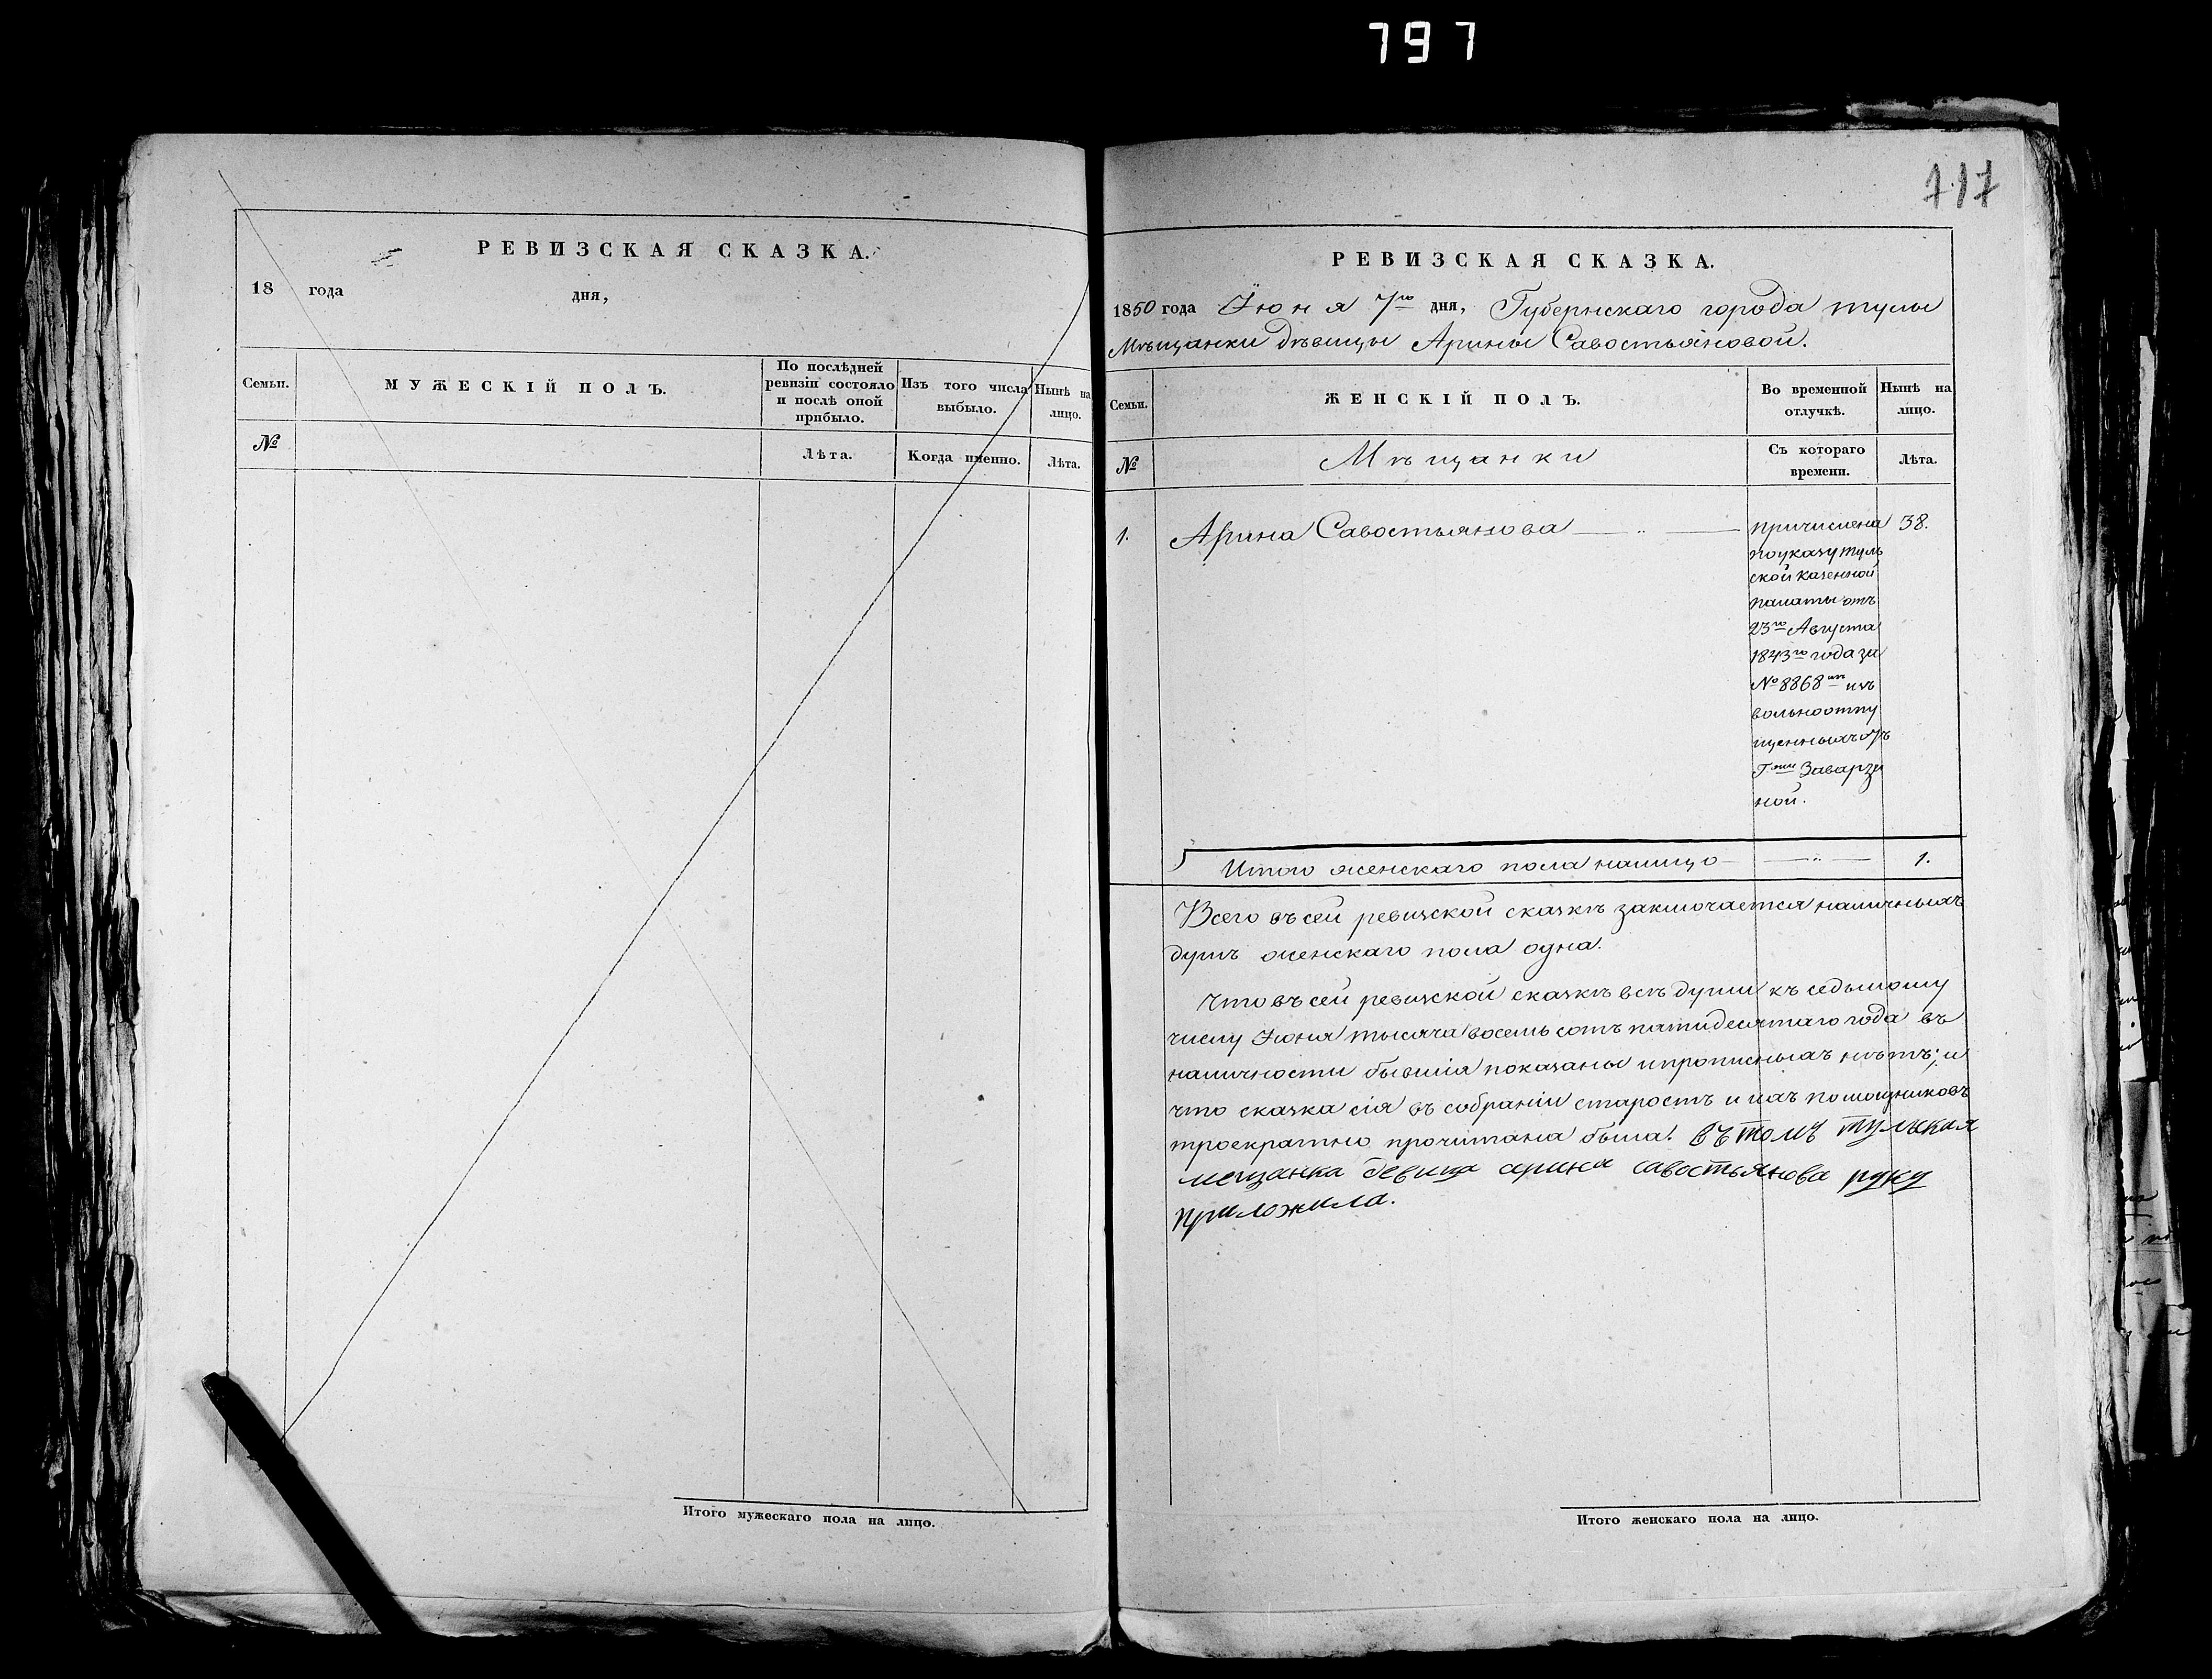 797
РЕВИЗСКАЯ СКАЗКА.
18 года дня,
Семьи.
МУЖЕСКІЙ ПОЛЪ.
По послѣдней
ревизіи состояло
и послѣ оной
прибыло.
Изъ того числа
выбыло.
Нынѣ на
лицо.
№
Лѣта.
Когда именно.
Лѣта.
Итого мужескаго пола на лицо.
717
РЕВИЗСКАЯ СКАЗКА.
1850 года Іюня 7го дня, Губернскаго города тулы
Мѣщанки дѣвицы Арины Савостьяновой.
Семьи.
ЖЕНСКІЙ ПОЛЪ.
Во временной
отлучкѣ.
Нынѣ на
лицо.
№
Мѣщанки
Съ котораго
времени.
Лѣта.
1. Арина Савостьянова
причислена 38.
поуказу туль
ской казенной
палаты отъ
23го Августа
1843го года за
№ 8868мъ изъ
вольноотпу
щенныхъ отъ
Гжи Заварзи
ной.
Итого женскаго пола налицо 1.
Всего въ сей ревизской сказкѣ заключается наличныхъ
душъ женскаго пола одна.
Что въ сей ревизской сказкѣ всѣ души къ седьмому
числу Іюня тысяча восемь сотъ пятидесятаго года въ
наличности бывшія показаны ипрописныхъ нѣтъ; и
что сказка сія въ собраніи старостъ и ихъ помощниковъ
троекратно прочитана была. въ томъ тульская
мещанка девица арина савостьянова руку
приложила.
Итого женскаго пола на лицо.